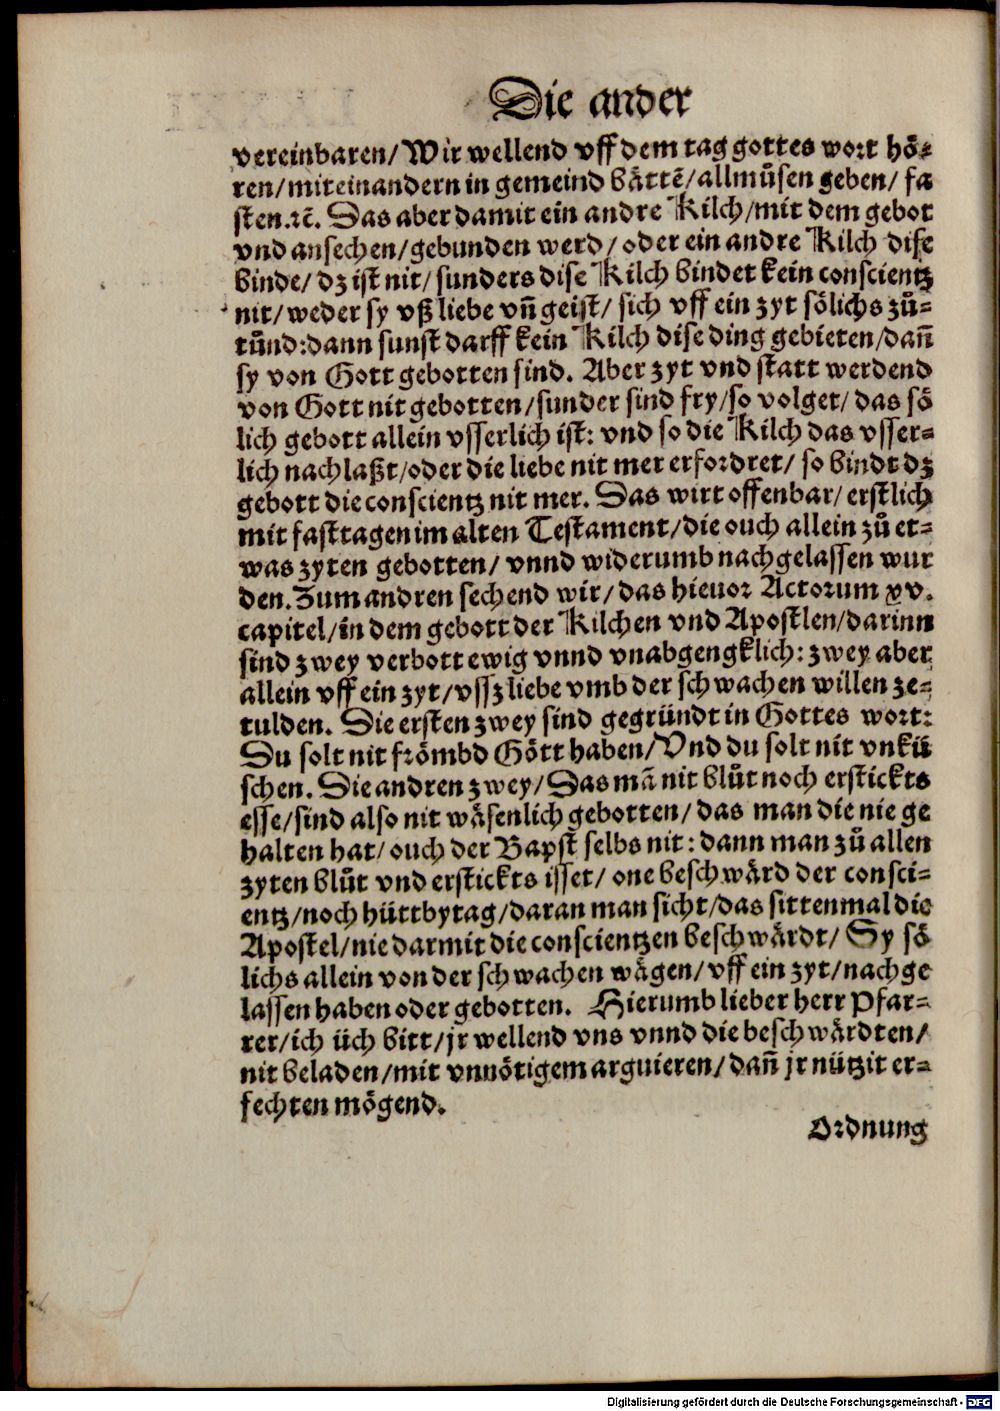 Die ander
vereinbaren/Wir wellend vff dem tag gottes wort hoͤ⸗
ren/miteinandern in gemeind baͤttẽ/allmuͦsen geben/ fa
sten.ꝛc̃. Das aber damit ein andre Kilch/mit dem gebot
vnd ansechen/gebunden werd/ oder ein andre Kilch dise
binde/ dz ist nit/ sunders dise Kilch bindet kein conscientz
nit/ weder sy vß liebe vñ geist/ sich vff ein zyt soͤlichs zuͦ⸗
tuͦnd:dann sunst darff kein Kilch dise ding gebieten/dañ
sy von Gott gebotten sind. Aber zyt vnd statt werdend
von Gott nit gebotten/sunder sind fry/so volget/ das soͤ
lich gebott allein vsserlich ist: vnd so die Kilch das vsser⸗
lich nachlaßt/oder die liebe nit mer erfordret/ so bindt dz
gebott die conscientz nit mer. Das wirt offenbar/ erstlich
mit fasttagen im alten Testament/die ouch allein zuͦ et⸗
was zyten gebotten/ vnnd widerumb nachgelassen wur
den. Zum andren sechend wir/das hieuor Actorum xv.
capitel/in dem gebott der Kilchen vnd Apostlen/darinn
sind zwey verbott ewig vnnd vnabgengklich: zwey aber
allein vff ein zyt/vssz liebe vmb der schwachen willen ze⸗
tulden. Die ersten zwey sind gegründt in Gottes wort:
Du solt nit froͤmbd Goͤtt haben/Vnd du solt nit vnkü
schen. Die andren zwey/Das mã nit bluͦt noch erstickts
esse/sind also nit waͤsenlich gebotten/ das man die nie ge
halten hat/ ouch der Bapst selbs nit: dann man zuͦ allen
zyten bluͦt vnd erstickts isset/ one beschwaͤrd der consci⸗
entz/noch hüttbytag/daran man sicht/das sittenmal die
Apostel/nie darmit die conscientzen beschwaͤrdt/ Sy soͤ
lichs allein von der schwachen waͤgen/vff ein zyt/nachge
lassen haben oder gebotten. Hierumb lieber herr Pfar⸗
rer/ich üch bitt/jr wellend vns vnnd die beschwaͤrdten/
nit beladen/mit vnnoͤtigem arguieren/dañ jr nützit er⸗
fechten moͤgend.
Ordnung
Digitalisierung gefördert durch die Deutsche Forschungsgemeinschaft - DFG